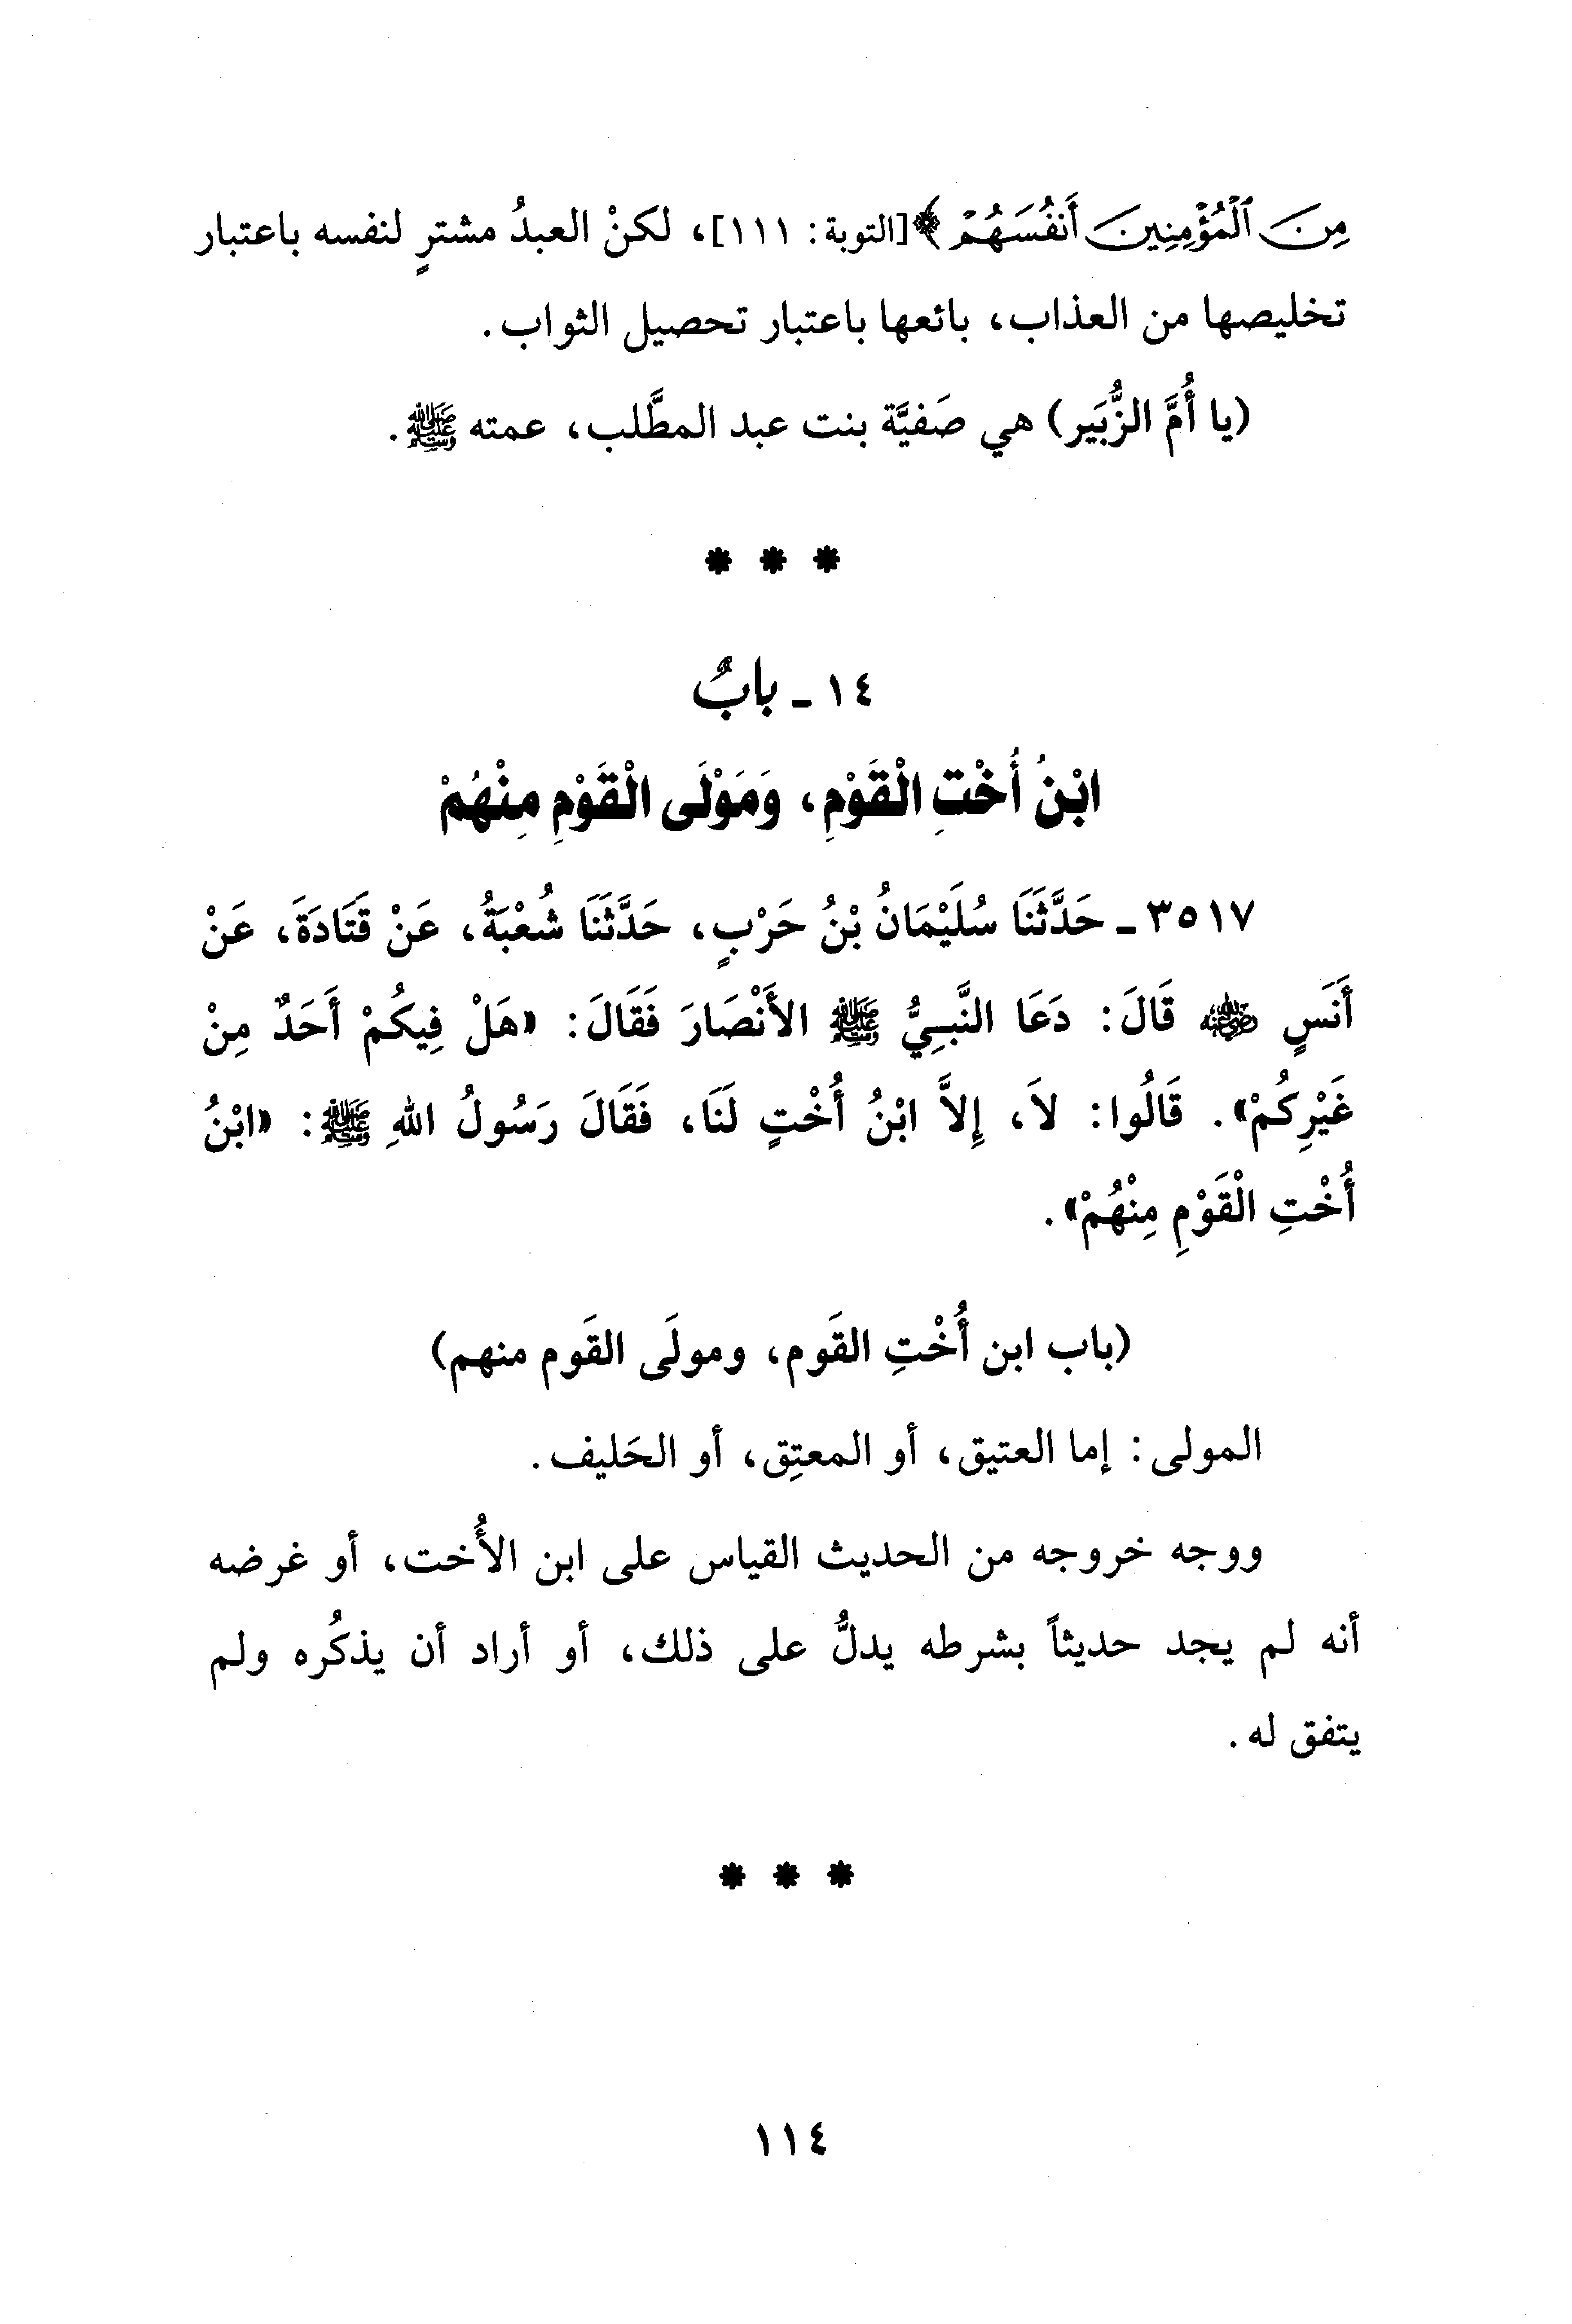 مِنَ ٱلْمُؤْمِنِينَ أَنفُسَهُمْ ﴾ [التوبة: ١١١]، لكنْ العبدُ مشترٍ لنفسه باعتبار
تخليصها من العذاب، بائعها باعتبار تحصيل الثواب.
(يا أُمَّ الزُّبَير) هي صَفيَّة بنت عبد المطَّلب، عمته ﷺ.
* * *
١٤ ـ بابٌ
ابْنُ أُخْتِ الْقَوْمِ، وَمَوْلَى الْقَوْمِ مِنْهُمْ
٣٥١٧ ـ حَدَّثَنَا سُلَيْمَانُ بْنُ حَرْبٍ، حَدَّثَنَا شُعْبَةُ، عَنْ قَتَادَةَ، عَنْ
أَنَسٍ رضي الله عنه قَالَ: دَعَا النَّبِيُّ ﷺ الأَنْصَارَ فَقَالَ: «هَلْ فِيكُمْ أَحَدٌ مِنْ
غَيْرِكُمْ». قَالُوا: لاَ، إِلاَّ ابْنُ أُخْتٍ لَنَا، فَقَالَ رَسُولُ اللهِ ﷺ: «ابْنُ
أُخْتِ الْقَوْمِ مِنْهُمْ».
(باب ابن أُخْتِ القَوم، ومولَى القَوم منهم)
المولى: إما العتيق، أو المعتِق، أو الحَليف.
ووجه خروجه من الحديث القياس على ابن الأُخت، أو غرضه
أنه لم يجد حديثاً بشرطه يدلُّ على ذلك، أو أراد أن يذكُره ولم
يتفق له.
* * *
١١٤